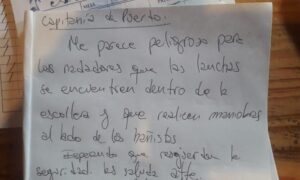 Capitanía de Puerto.
Me parece peligroso para
los nadadores que las lanchas
se encuentren dentro de la
escollera y que realicen maniobras
al lado de los bañistas
Esperando que resguarden la
seguridad. les saluda atte.